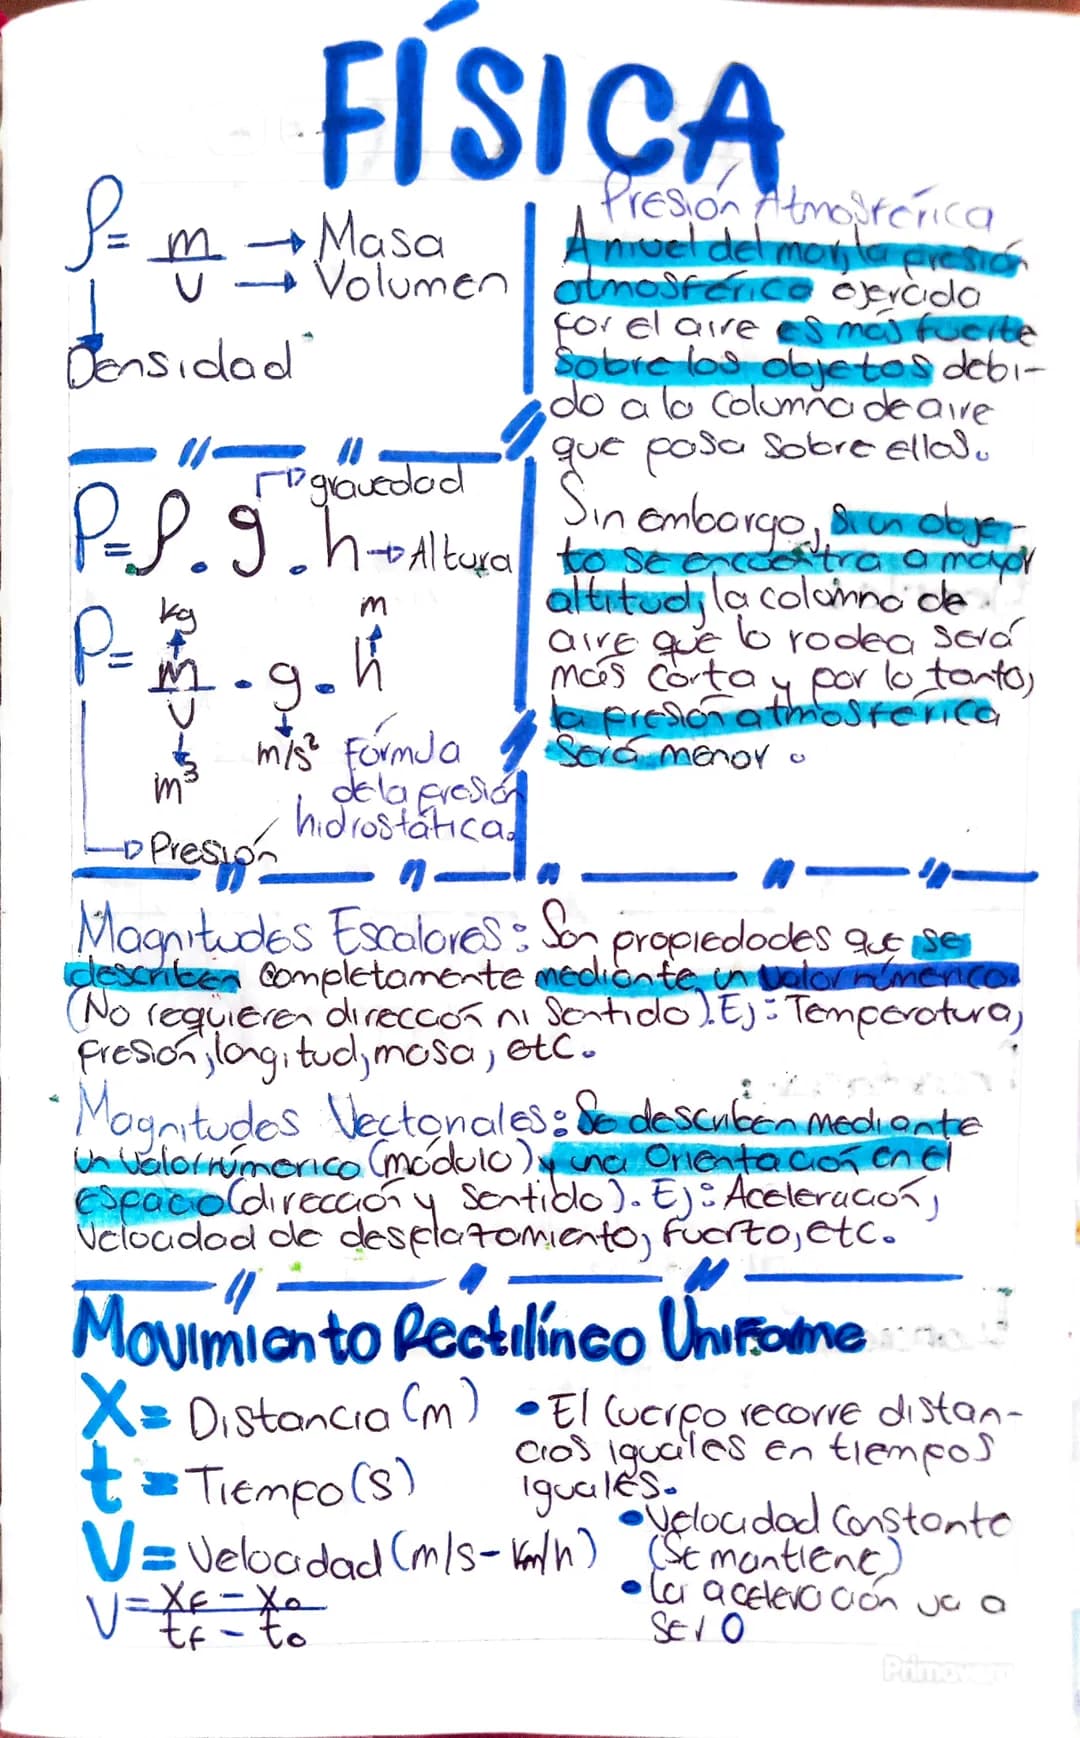 FÍSICA
ρ = m → Masa
v → Volumen
Densidad
gravedad
P = ρ . g . h → Altura
kg m
P = m . g . h
v
m³
m/s² Fórmula
de la presión
hidrostática.
Presión
Presión Atmosférica
A nivel del mar, la presión
atmosférica ejercida
por el aire es más fuerte
sobre los objetos debi-
do a la columna de aire
que pasa sobre ellos.
Sin embargo, si un obje-
to se encuentra a mayor
altitud, la columna de
aire que lo rodea será
más corta y por lo tanto,
la presión atmosférica
será menor.
Magnitudes Escalares: Son propiedades que se
describen completamente mediante un valor númerico
(No requieren dirección ni sentido). Ej: Temperatura,
presión, longitud, masa, etc.
Magnitudes Vectoriales: Se describen mediante
un valor númerico (módulo) y una orientación en el
espacio (dirección y sentido). Ej: Aceleración,
velocidad de desplazamiento, fuerza, etc.
Movimiento Rectilíneo Uniforme
X = Distancia (m)
t = Tiempo (s)
V = Velocidad (m/s - Km/h)
V = XF - X0
tF - t0
• El cuerpo recorre distan-
cias iguales en tiempos
iguales.
• Velocidad Constante
(Se mantiene)
• La aceleración va a
ser 0
Primavera